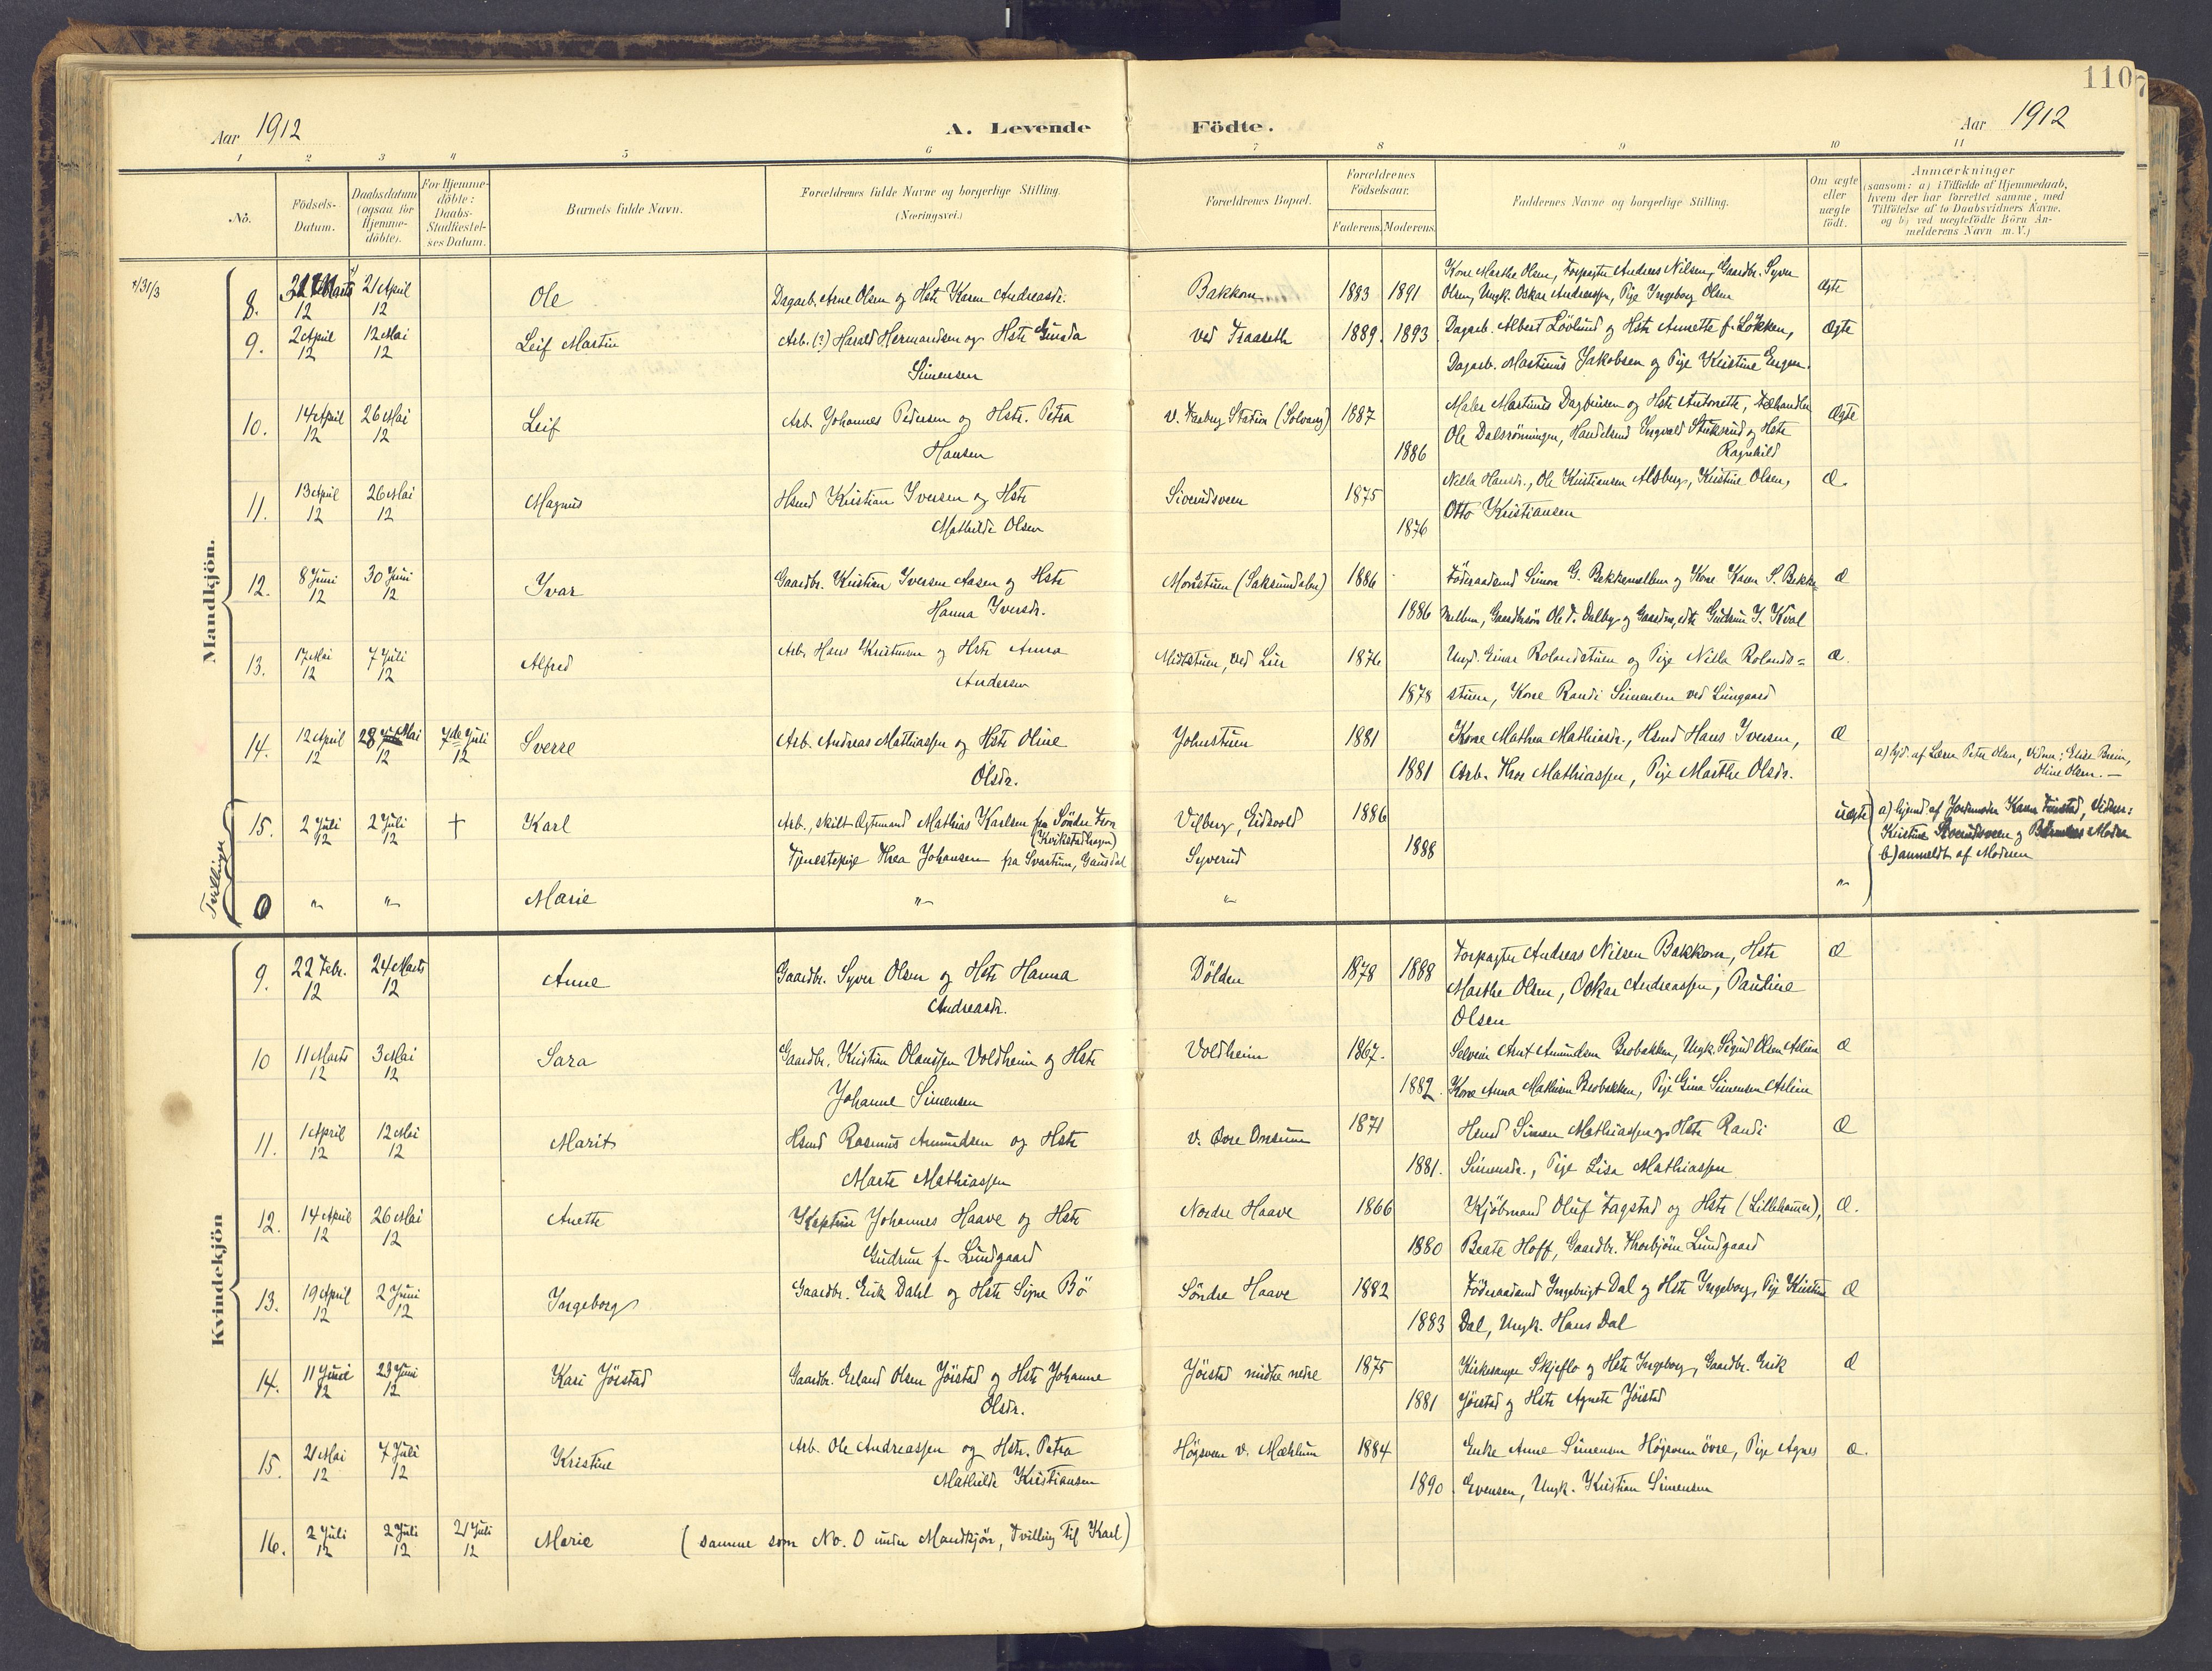 110
Aar 1912
A. Levende Födte.
Aar 1912
1 2 3 4 5 6 7 8 9 10 11
No.
Födsels-
Datum.
Daabsdatum
(ogsaa for
Hjemme-
döbte).
For Hjemme-
döbte:
Daabs-
Stadfæstel-
ses Datum.
Barnets fulde Navn.
Forældrenes fulde Navne og borgerlige Stilling.
(Næringsvei.)
Forældrenes Bopæl.
Forældrenes
Födselsaar.
Faderens. Moderens.
Faddernes Navne og borgerlige Stilling.
Om ægte
eller
uægte
födt.
Anmærkninger
(saasom: a) i Tilfælde af Hjemmedaab,
hvem der har forrettet samme, med
Tilföielse af to Daabsvidners Navne.
og b) ved uægtefödte Börn An-
melderens Navn m. V.)
Mandkjön.
8. 12 21 April 12 Ole Dagarb. Arne Olsen og Hstr Karen Andreasdr. Bakkom 1883 1891 Kone Marthe Olsen, Forpagter Andreas Nilsen, Gaardbr. Syver
Olsen, Ungk. Oskar Andreassen, Pige Ingeborg Olsen Ægte
9. 2 April 12 12 Mai 12 Leif Martin Arb. (?) Harald Hermandsen og Hstr Gunda
Simensen ved Fraaseth 1889. 1893 Dagarb. Albert Lövlund og Hstr Annette f. Lökken,
Dagarb. Martinus Jakobsen og Pige Kristine Engen. Ægte
10. 14 April 12 26 Mai 12 Leif Arb. Johannes Pedersen og Hstr. Petra
Hansen v. Faaberg Station (Solvang) 1887 1886 Maler Martinus Dagfinsen og Hstr Antonette, Fælhandler
Ole Dalsröningen, Handelsmd Ingvald Stuksrud og Hstr
Ragnhild Ægte
11. 13 April 12 26 Mai 12 Magnus Hsmd Kristian Iversen og Hstr
Mathilde Olsen Siverudsveen 1875 1876 Nella Hansdr., Ole Kristiansen Alsberg, Kristine Olsen,
Otto Kristiansen Æ.
12. 8 Juni 12 30 Juni 12 Ivar Gaardbr. Kristian Iversen Aasen og Hstr
Hanna Iversdr. Morüstuen (Saksumdalen) 1886 1886 Föderaadsmd Simon G. Bekkemellem og Kone Karen S. Bekke=
mellem, Gaardbrsön Ole T. Dalby og Gaardmdsdtr Gudrun J. Kval Æ
13. 17 Mai 12 7 Juli 12 Alfred Arb. Hans Kristiansen og Hstr Anna
Andersen Midtstuen, ved Lier 1876 1878 Ungk. Einar Rolandstuen og Pige Nilla Rolands=
stuen, Kone Randi Simensen ved Lungaard Æ.
14. 12 April 12 28 Mai 12 7de Juli 12 Sverre Arb. Andreas Mathiassen og Hstr Oline
Olsdr. Johnstuen 1881 1881 Kone Mathea Mathiasdr., Hsmd Hans Iversen,
Arb. Thor Mathiassen, Pige Marthe Olsdr. Æ
a) Hjd. af Lærer Peter Olsen, Vidner: Elise Breim,
Oline Olsen. —
Tvillinger
15. 2 Juli 12 2 Juli 12 † Karl Arb., skilt Ægtemand Mathias Karlsen fra Söndre Fron
(Kvikstadhagen)
Tjenestepige Thea Johansen fra Svartum, Gausdal Vilberg, Eidsvold
Syverud 1886 1888 uægte
a) Hjemd. af Jordmoder Karen Furstad, Vidner:
Kristine Siverudsveen og Barnets Moder
b) anmeldt af Moderen
0 " " Marie " " "
Kvindekjön
9. 22 Febr. 12 24 Marts 12 Anne Gaardbr. Syver Olsen og Hstr Hanna
Andreasdr. Dölden 1878 1888 Forpagter Andreas Nilsen Bakkom, Hstr
Marthe Olsen, Oskar Andreassen, Pauline
Olsen Æ
10 11 Marts 12 3 Mai 12 Sara Gaardbr. Kristian Olaussen Voldheim og Hstr
Johanne Simensen Voldheim 1867. 1882. Selveier Arnt Amundsen Brobakken, Ungk. Sigurd Olsen Aslien
Kone Anna Mathisen Brobakken, Pige Gina Simensen Aslien Æ
11. 1 April 12 12 Mai 12 Marit Hsmd Rasmus Amundsen og Hstr
Marte Mathiassen v. Övre Onsum 1871 1881. Hsmd Simen Mathiassen og Hstr Randi
Simensdr., Pige Lisa Mathiassen Æ
12. 14 April 12 26 Mai 12 Anette Kaptein Johannes Haave og Hstr
Gudrun f. Lundgaard Nordre Haave 1866 1880 Kjöbmand Oluf Fagstad og Hstr (Lillehamer),
Beate Hoff, Gaardbr. Thorbjörn Lundgaard Æ.
13. 19 April 12 2 Juni 12 Ingeborg Gaardbr. Erik Dahl og Hstr Signe Bö Söndre Haave 1882 1883 Föderaadsmd Ingebrigt Dal og Hstr Ingeborg, Pige Kristine
Dal, Ungk. Hans Dal Æ
14. 11 Juni 12 23 Juni 12 Kari Jörstad Gaardbr. Erland Olsen Jörstad og Hstr Johanne
Olsdr. Jörstad midtre nedre 1875 1881 Kirkesanger Skjeflo og Hstr Ingeborg, Gaardbr. Erik
Jörstad og Hstr Agnete Jörstad Æ
15. 21 Mai 12 7 Juli 12 Kristine Arb. Ole Andreassen og Hstr. Petra
Mathilde Kristiansen Högsveen v. Mæhlum 1884 1890 Enke Anne Simensen Högsveen övre, Pige Agnes
Evensen, Ungk. Kristian Simensen Æ.
16. 2 Juli 12 2 Juli 12 21 Juli 12 Marie (samme som No. 0 under Mandkjön, Tvilling til Karl)